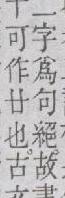 一字爲句絕。故書
可作廿也。古